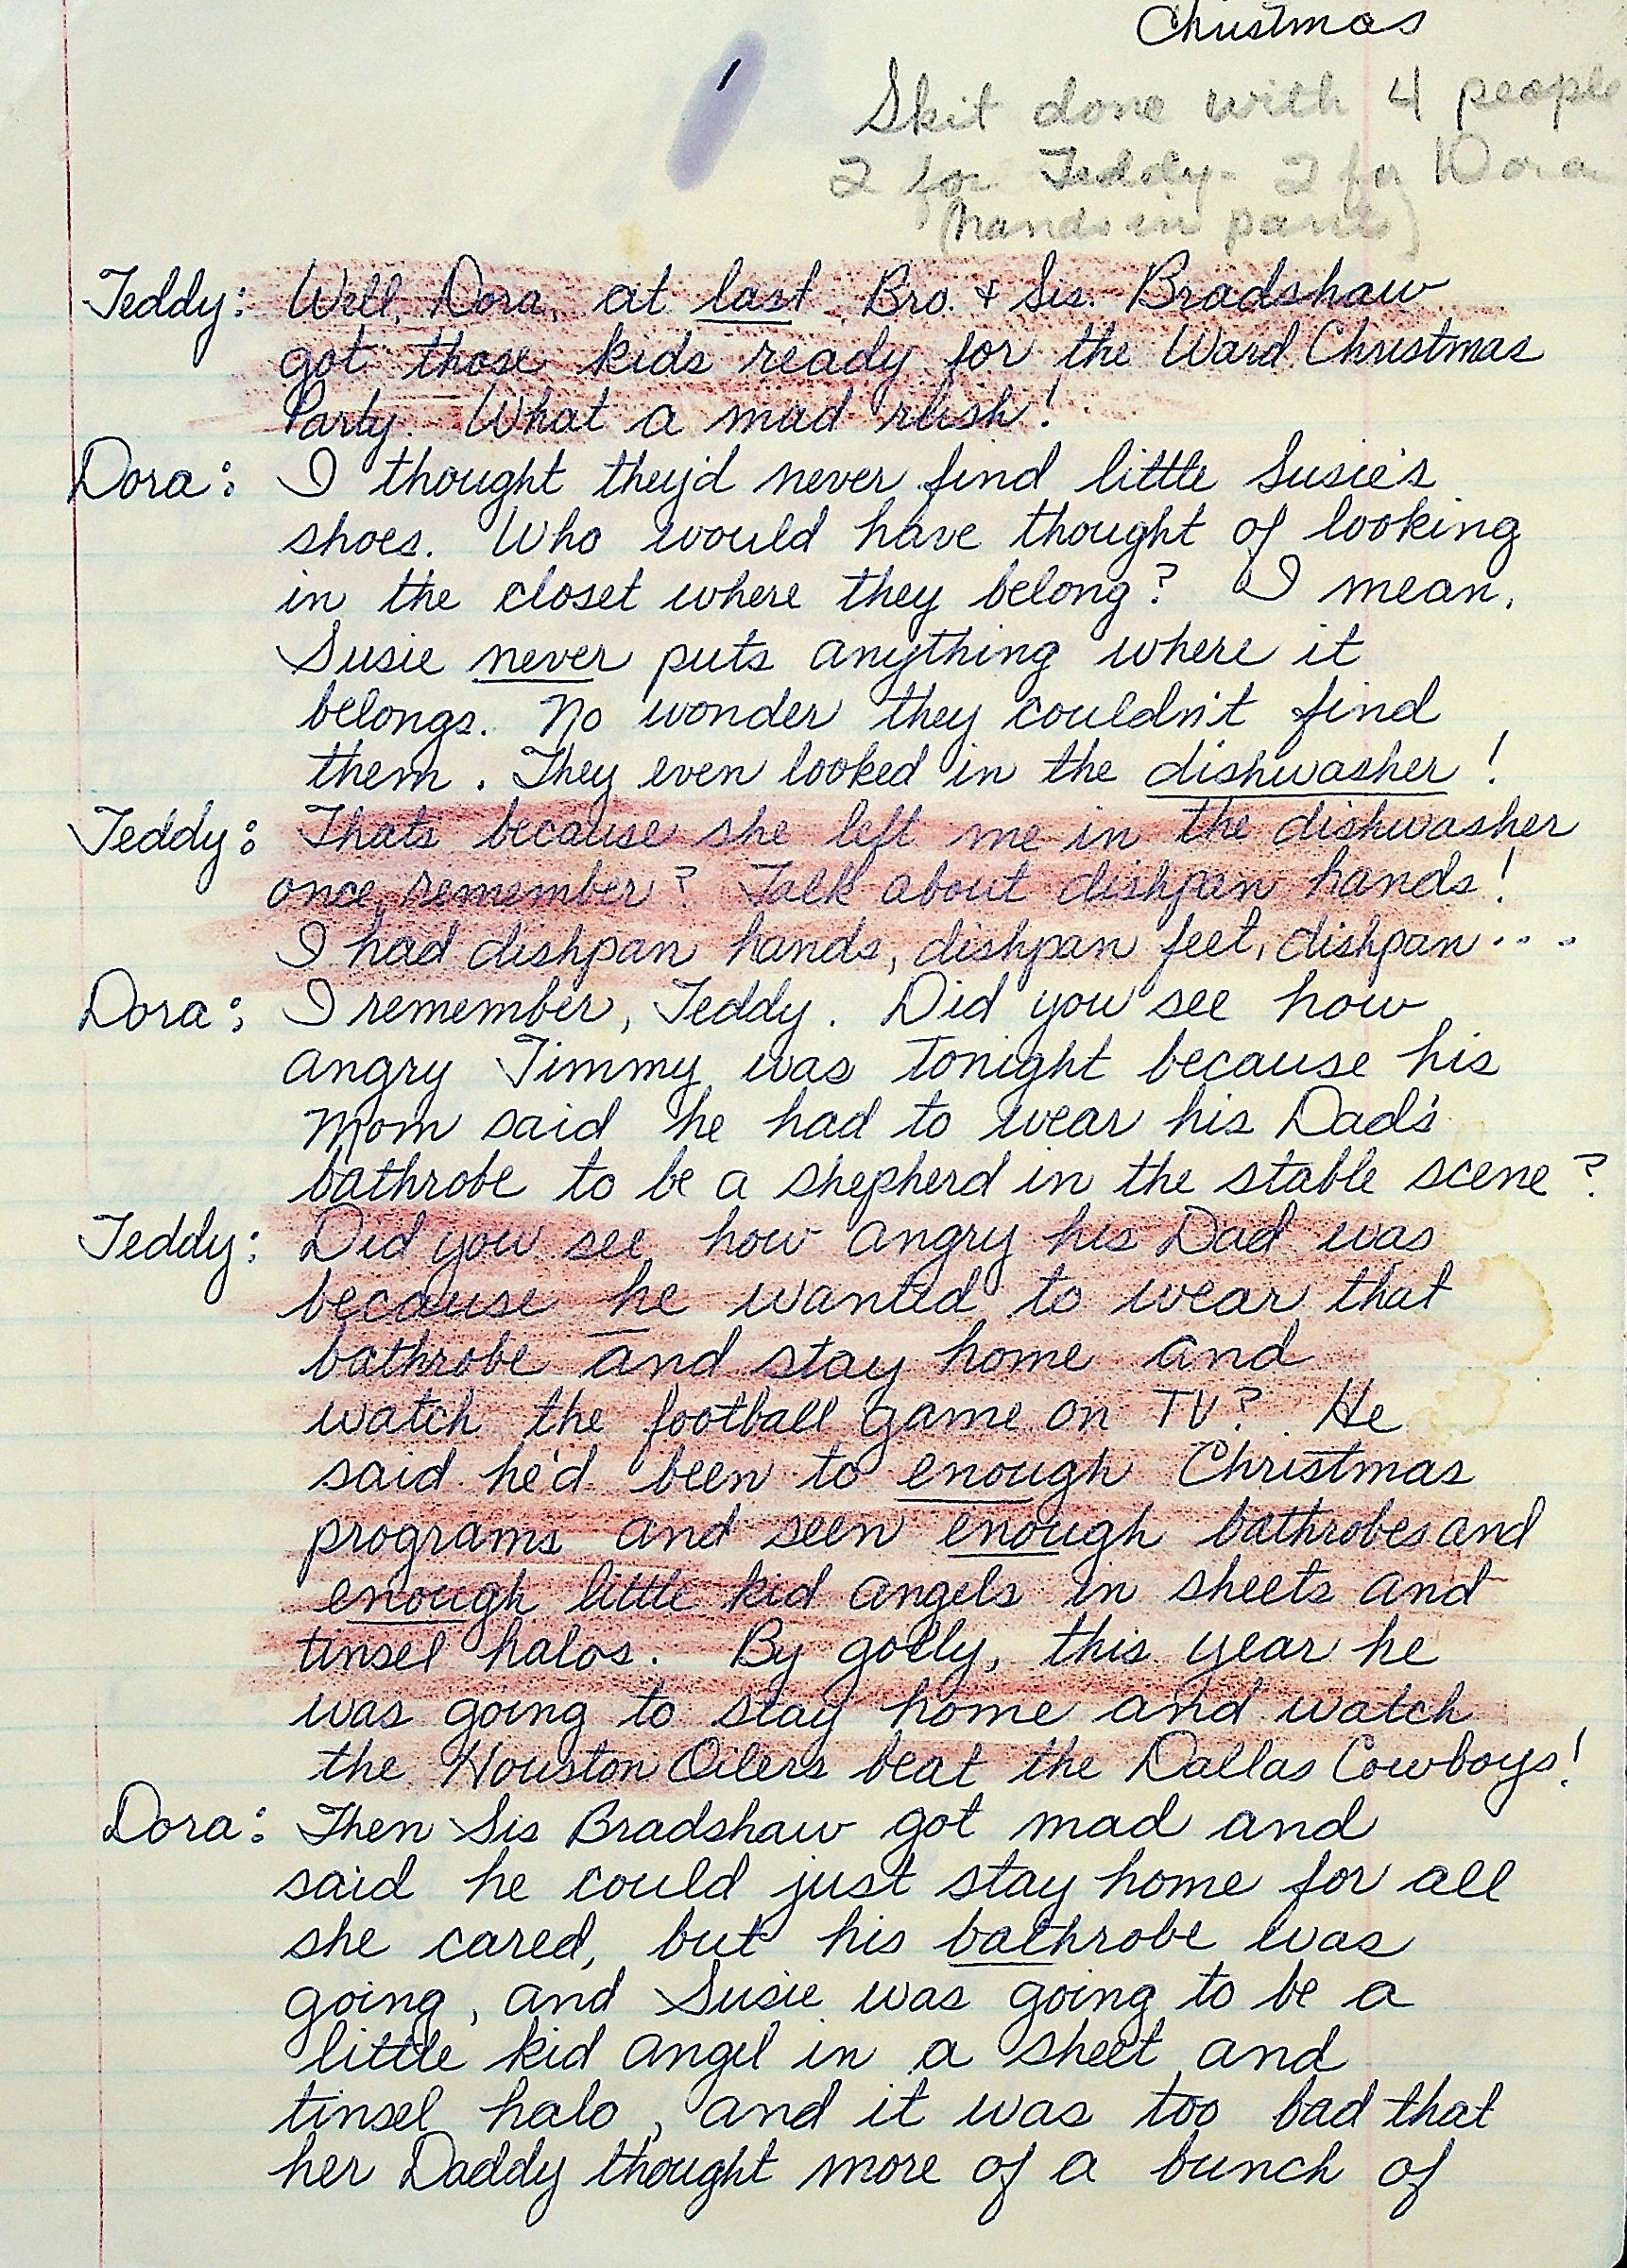 Christmas
1
Skit done with 4 people
2 for Teddy - 2 for Dora
(hands in pants)
Teddy: Well, Dora, at last Bro. & Sis. Bradshaw
got those kids ready for the Ward Christmas
Party. What a mad rush!
Dora: I thought they'd never find little Susie's
shoes. Who would have thought of looking
in the closet where they belong? I mean,
Susie never puts anything where it
belongs. No wonder they couldn't find
them. They even looked in the dishwasher!
Teddy: Thats because she left me in the dishwasher
once, remember? Talk about dishpan hands!
I had dishpan hands, dishpan feet, dishpan...
Dora: I remember, Teddy. Did you see how
angry Timmy was tonight because his
Mom said he had to wear his Dad's
bathrobe to be a shepherd in the stable scene?
Teddy: Did you see how angry his Dad was
because he wanted to wear that
bathrobe and stay home and
watch the football game on TV? He
said he'd been to enough Christmas
programs and seen enough bathrobes and
enough little kid angels in sheets and
tinsel halos. By golly, this year he
was going to stay home and watch
the Houston Oilers beat the Dallas Cowboys!
Dora: Then Sis Bradshaw got mad and
said he could just stay home for all
she cared, but his bathrobe was
going, and Susie was going to be a
little kid angel in a sheet and
tinsel halo, and it was too bad that
her Daddy thought more of a bunch of